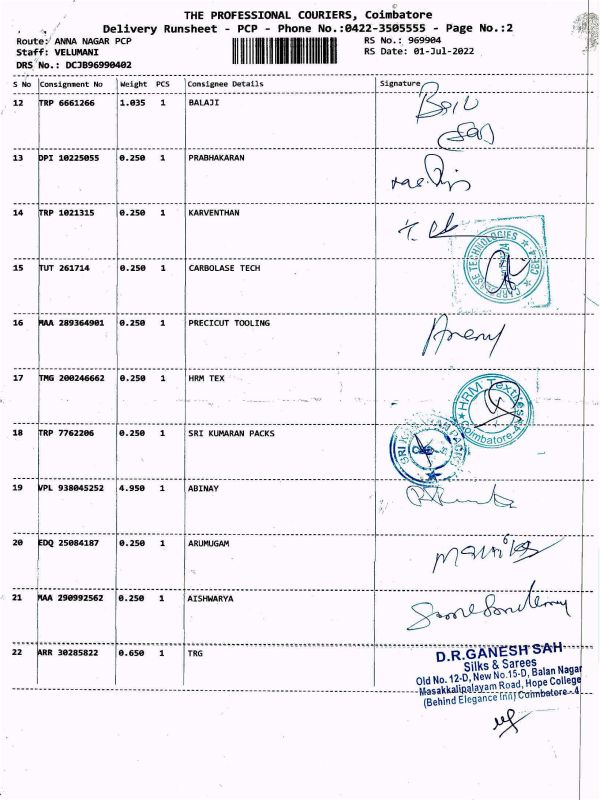 THE PROFESSIONAL COURIERS, Coimbatore
Delivery Runsheet - PCP - Phone No.:0422-3505555 - Page No.:2
Route: ANNA NAGAR PCP
RS No.: 969904
Staff: VELUMANI
RS Date: 01-Jul-2022
DRS No.: DCJB96990402
S No Consignment No Weight PCS Consignee Details Signature
12 TRP 6661266 1.035 1 BALAJI
13 DPI 10225055 0.250 1 PRABHAKARAN
14 TRP 1021315 0.250 1 KARVENTHAN
15 TUT 261714 0.250 1 CARBOLASE TECH
16 MAA 289364901 0.250 1 PRECICUT TOOLING
17 TMG 200246662 0.250 1 HRM TEX
HRM Textiles
Coimbatore-4
18 TRP 7762206 0.250 1 SRI KUMARAN PACKS
19 VPL 938045252 4.950 1 ABINAY
20 EDQ 25084187 0.250 1 ARUMUGAM
21 MAA 290992562 0.250 1 AISHWARYA
22 ARR 30285822 0.650 1 TRG
D.R.GANESH SAH
Silks & Sarees
Old No. 12-D, New No.15-D, Balan Nagar
Masakkalipalayam Road, Hope College
(Behind Elegance Inn) Coimbatore - 4